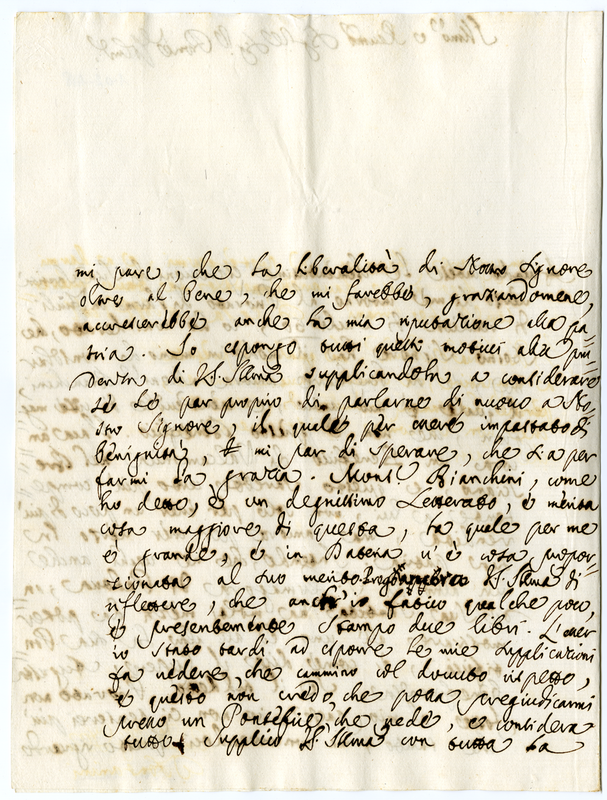 mi pare, che la liberalità di Nostro Signore
oltre al bene, che mi farebbe, graziandomene,
accrescerebbe anche la mia riputazione alla pa=
tria. Io espongo tutti questi motivi alla pru=
denza di V.S. Illma supplicandola a considerare
se Le par proprio di parlarne di nuovo a No=
stro Signore, il quale per essere impastato di
benignità, mi par di sperare, che sia per
farmi la grazia. Monsr Bianchini, come
ho detto, è un degnissimo Letterato, e merita
cosa maggiore di questa, la quale per me
è grande, e in Patena v'è cosa propor=
zionata al suo merito. Prego V.S. Illma di
riflettere, che anch'io fatico qualche poco,
e presentemente stampo due libri. L'esser
io stato tardi ad esporre le mie supplicazioni
fa vedere, che cammino col dovuto rispetto,
e questo non credo, che possa pregiudicarmi
presso un Pontefice, che vede, e considera
tutto. Supplico V.S. Illma con tutta la